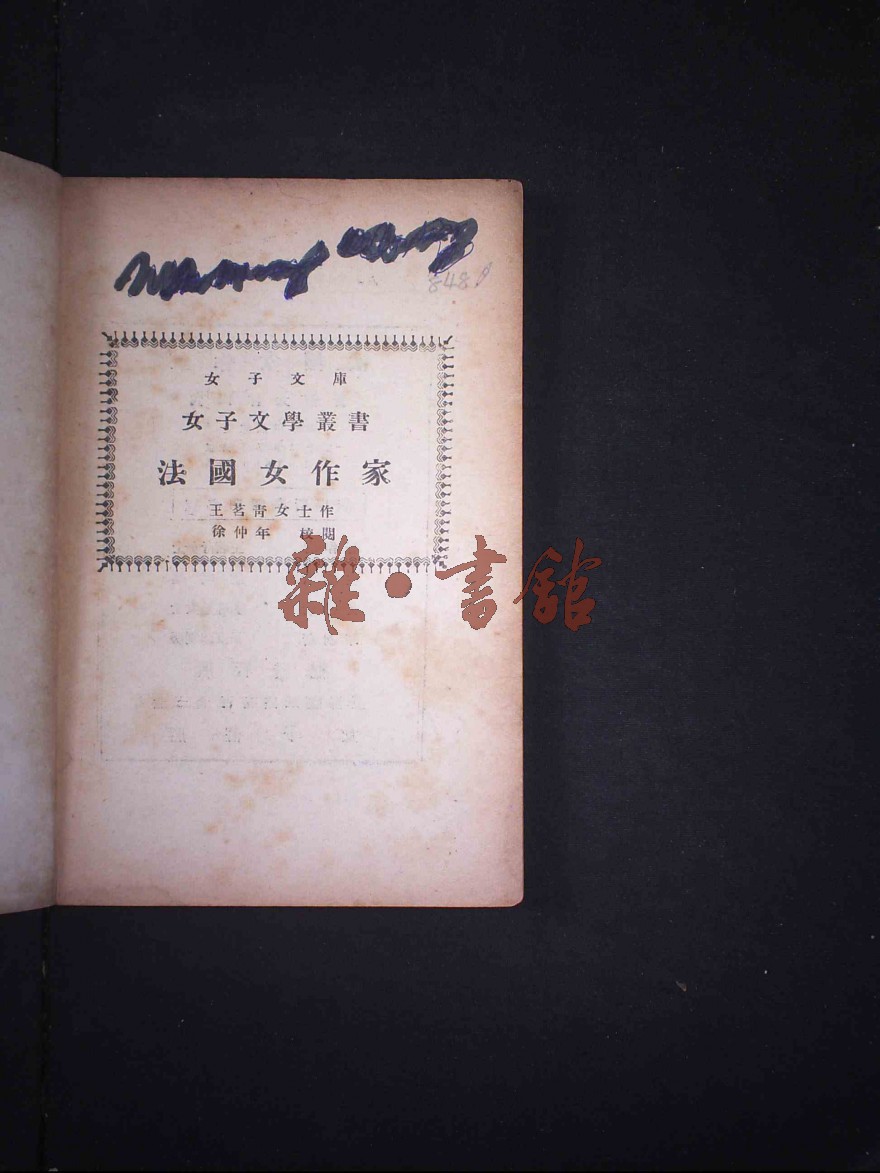 848
女子文庫
女子文學叢書
法國女作家
王茗青女士作
徐仲年 校閱
雜·書館